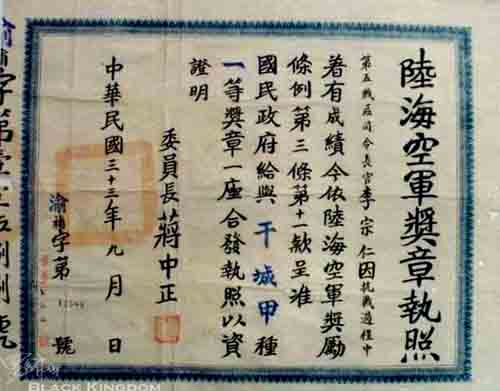 陸海空軍獎章執照
第五戰區司令長官李宗仁因抗戰過程中
著有成績今依陸海空軍獎勵
條例第三條第十一款呈准
國民政府給與干城甲種
一等獎章一座合發執照以資
證明
委員長蔣中正
中華民國三十三年九月 日
渝補字第 號
BLACK KINGDOM